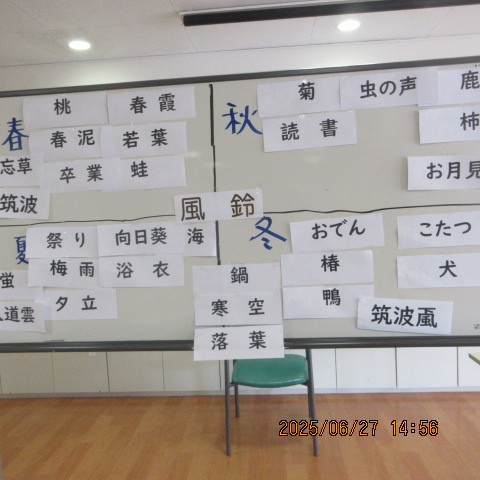 春
桃
春霞
春泥
若葉
忘草
卒業
蛙
筑波
秋
菊
虫の声
鹿
読書
柿
お月見
風鈴
夏
祭り
向日葵
海
蛍
梅雨
浴衣
道雲
夕立
冬
おでん
こたつ
鍋
椿
犬
寒空
鴨
筑波颪
落葉
2025/06/27 14:56